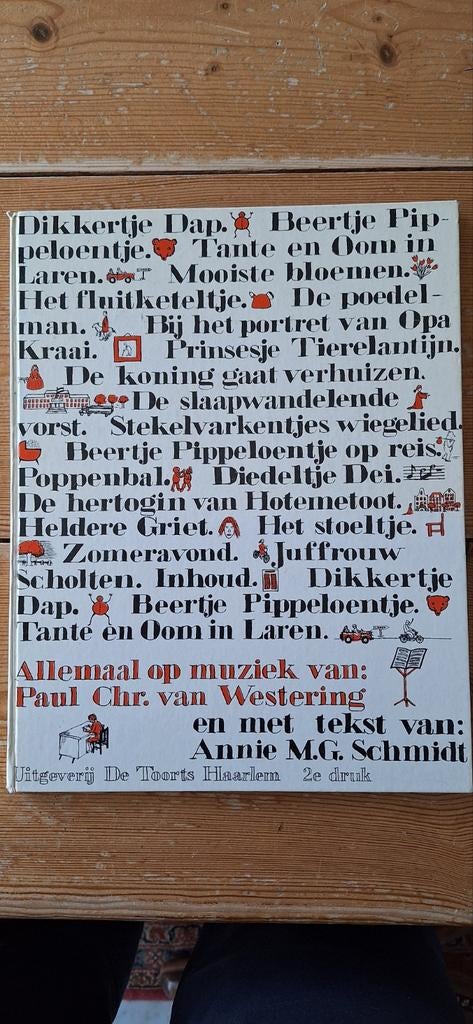 Dikkertje Dap. Beertje Pip-
peloentje. Tante en Oom in
Laren. Mooiste bloemen.
Het fluitketeltje. De poedel-
man. Bij het portret van Opa
Kraai. Prinsesje Tierelantijn.
De koning gaat verhuizen.
De slaapwandelende
vorst. Stekelvarkentjes wiegelied.
Beertje Pippeloentje op reis.
Poppenbal. Diedeltje Dei.
De hertogin van Hotemetoot.
Heldere Griet. Het stoeltje.
Zomeravond. Juffrouw
Scholten. Inhoud. Dikkertje
Dap. Beertje Pippeloentje.
Tante en Oom in Laren.
Allemaal op muziek van:
Paul Chr. van Westering
en met tekst van:
Annie M.G. Schmidt
Uitgeverij De Toorts Haarlem 2e druk